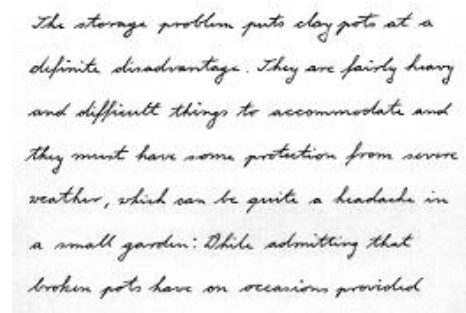 The storage problem puts clay pots at a
definite disadvantage. They are fairly heavy
and difficult things to accommodate and
they must have some protection from severe
weather, which can be quite a headache in
a small garden: While admitting that
broken pots have on occasions provided